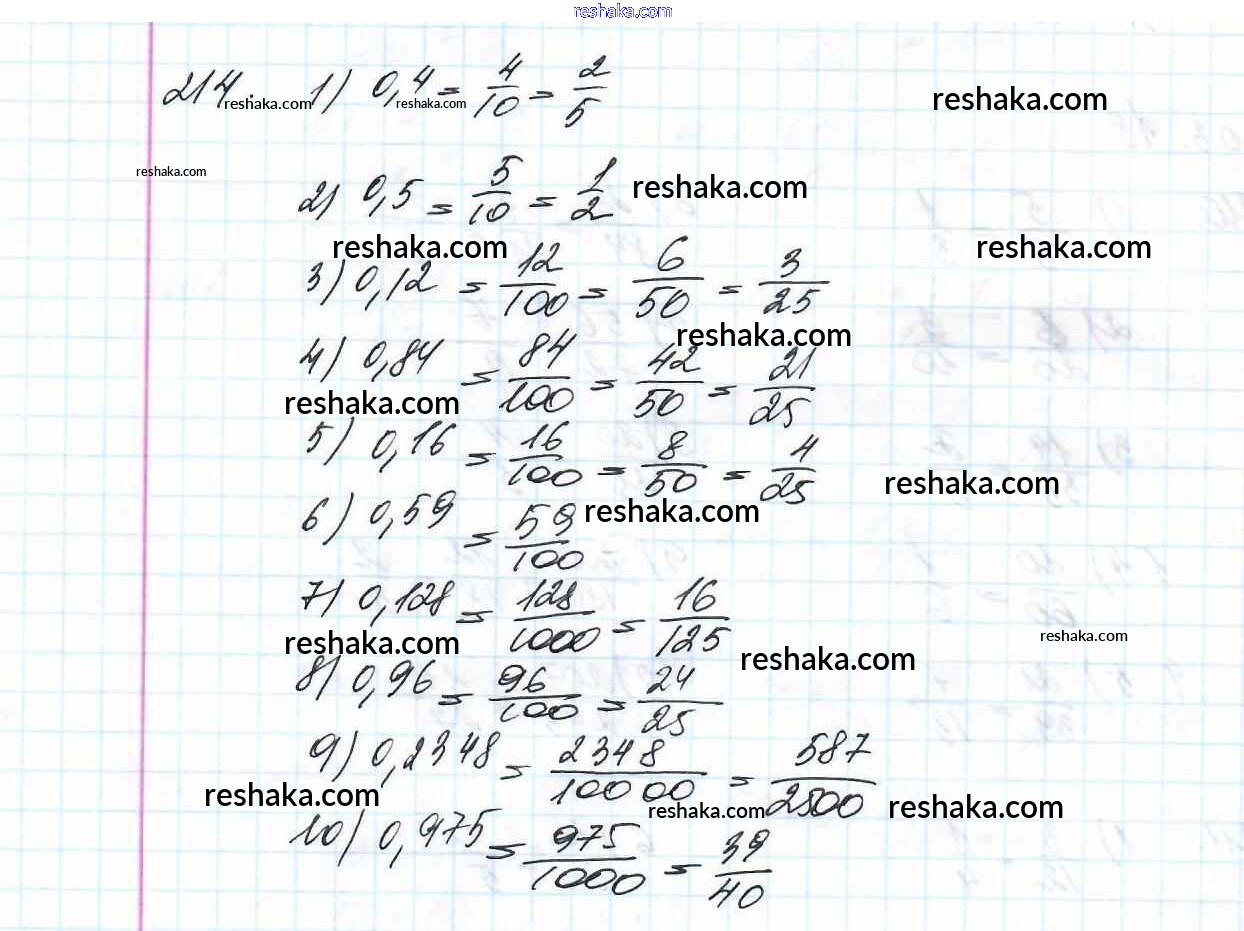 reshaka.com
214. 1) 0,4 = 4/10 = 2/5
reshaka.com
reshaka.com
reshaka.com
reshaka.com
2) 0,5 = 5/10 = 1/2
reshaka.com
reshaka.com
reshaka.com
3) 0,12 = 12/100 = 6/50 = 3/25
reshaka.com
4) 0,84 = 84/100 = 42/50 = 21/25
reshaka.com
5) 0,16 = 16/100 = 8/50 = 4/25
reshaka.com
6) 0,59 = 59/100
reshaka.com
7) 0,128 = 128/1000 = 16/125
reshaka.com
reshaka.com
reshaka.com
8) 0,96 = 96/100 = 24/25
9) 0,2348 = 2348/10000 = 587/2500
reshaka.com
reshaka.com
reshaka.com
10) 0,975 = 975/1000 = 39/40